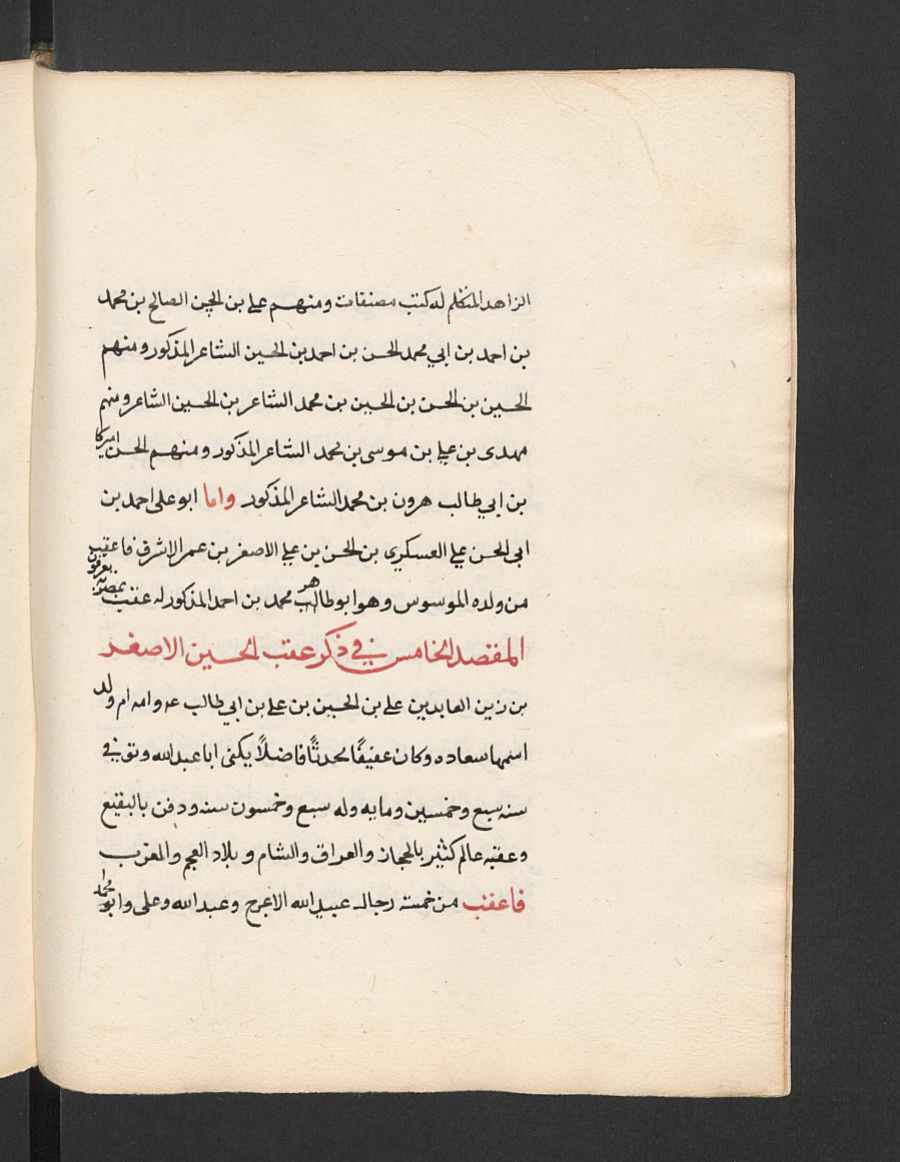 الزاهد المتكلم له كتب مصنفات ومنهم على بن الحسن الصالح بن محمد
بن احمد بن ابي محمد الحسن بن احمد بن الحسين الشاعر المذكور ومنهم
الحسين بن الحسن بن الحسين بن محمد الشاعر بن الحسين الشاعر ومنهم
مهدى بن على بن موسى بن محمد الشاعر المذكور ومنهم الحسن اميركا
بن ابي طالب هرون بن محمد الشاعر المذكور واما ابو على احمد بن
ابى الحسن على العسكري بن الحسن بن على الاصغر بن عمر الاشرف فاعقب
من ولده الموسوس وهو ابوطالب محمد بن احمد المذكور له عقب بمصر يعرفون به
المقصد الخامس في ذكر عقب الحسين الاصغر
بن زين العابدين على بن الحسين بن على بن ابي طالب عم وامه ام ولد
اسمها سعاده وكان عفيفًا محدثًا فاضلاً يكنى ابا عبد الله وتوفي
سنه سبع وخمسين ومايه وله سبع وخمسون سنه ودفن بالبقيع
وعقبه عالم كثير بالحجاز والعراق والشام و بلاد العجم والمغرب
فاعقب من خمسة رجال عبيد الله الاعرج وعبد الله وعلى وابو محمد